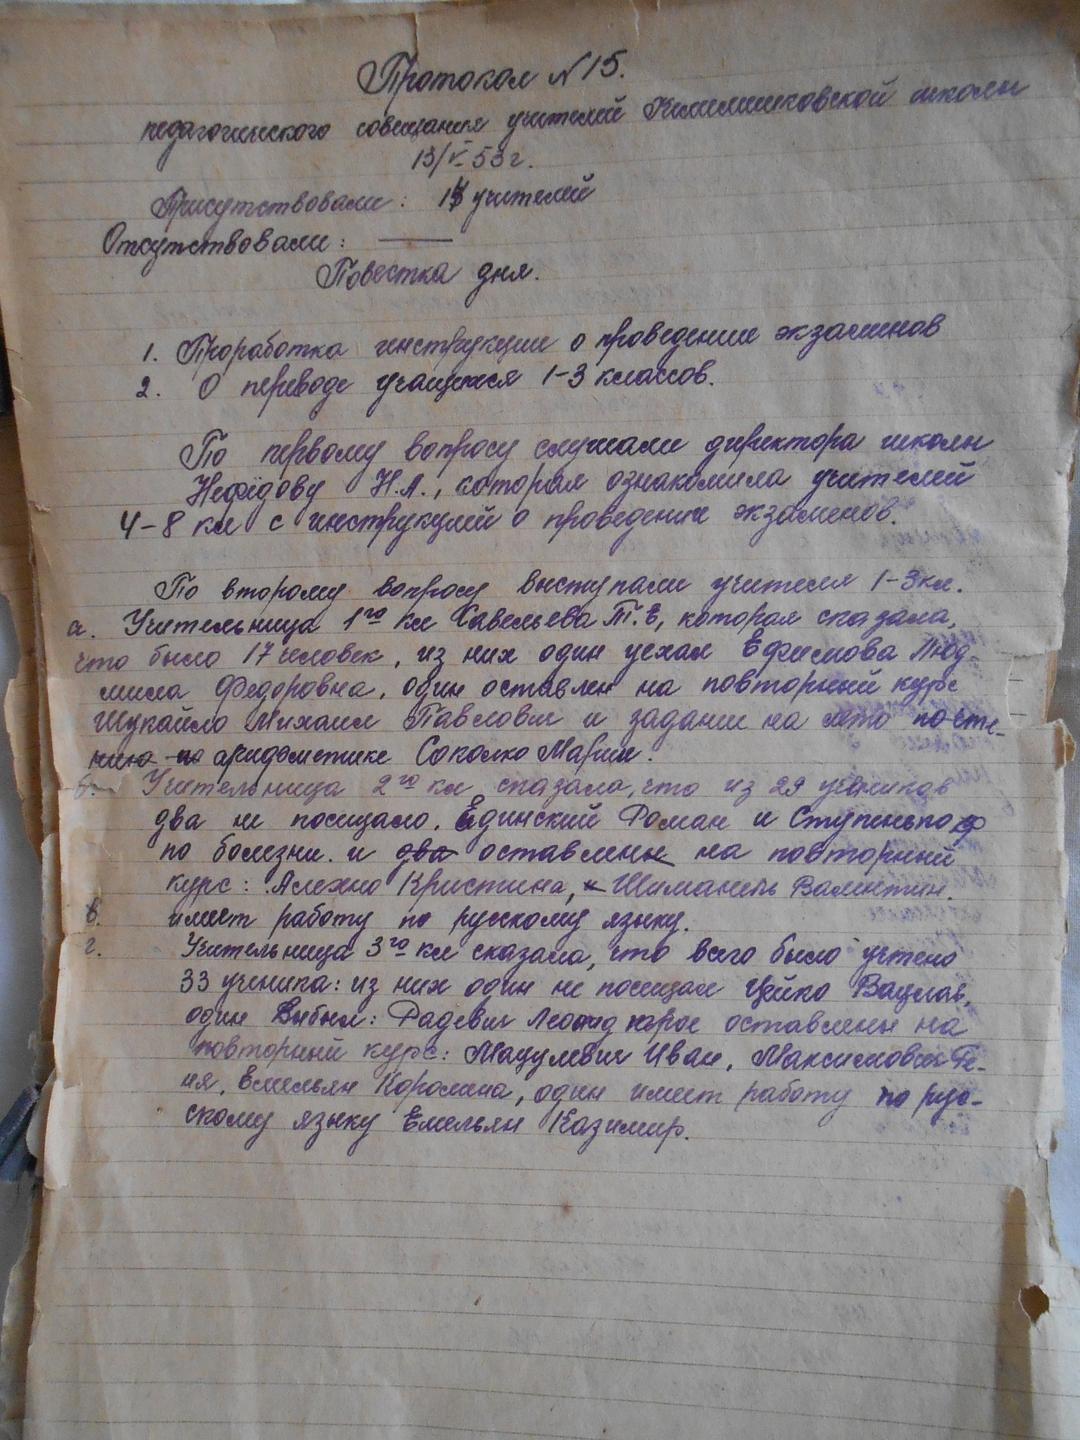 Протокол N 15.
педагогического совещания учителей школы
13/V 53 г.
Присутствовали: учителей
Отсутствовали: ———
Повестка дня.
1. Проработка инструкции о проведении экзаменов
2. О переводе учащихся 1-3 классов.
По первому вопросу слушали директора школы
Нефёдову Н.А., которая ознакомила учителей
4-8 кл с инструкцией о проведении экзаменов.
По второму вопросу выступали учителя 1-3 кл.
а. Учительница 1го кл Савельева Т.Е, которая сказала,
что было 17 человек, из них один уехал Ефимова Люд-
мила Федоровна, один оставлен на повторный курс
Шукайло Михаил Павлович и задание на лето по чте-
нию по арифметике Соколко Мария.
б. Учительница 2го кл сказала, что из 29 учеников
два не посещало. Единский Роман и
по болезни. и два оставлены на повторный
курс: Алехно Кристина, и Шиманель Валентин.
в. имеет работу по русскому языку.
г. Учительница 3го кл сказала, что всего было учтено
33 ученика: из них один не посещал Цейко Вацлав,
один выбыл: Радевич Леонид трое оставлены на
повторный курс: Мацулевич Иван, Максимович Ге-
ня, Емельян Королина, один имеет работу по рус-
скому языку Емельян Казимир.